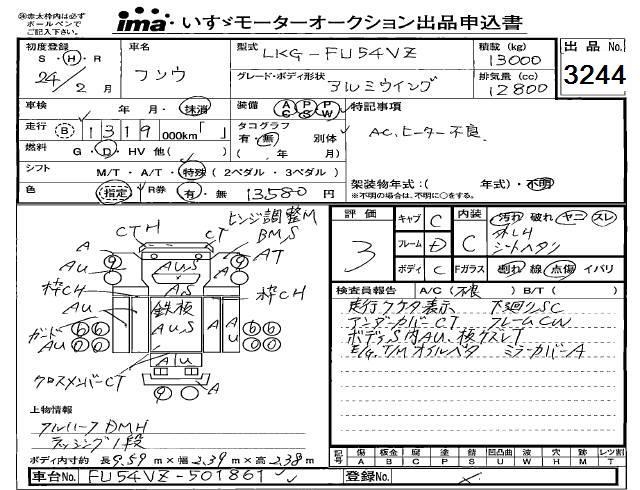 ※赤太枠内は必ず
ボールペンで
ご記入下さい。
ima いすゞモーターオークション出品申込書
初度登録 S・H・R 24/2月
車名 フソウ
型式 LKG-FU54VZ
積載 (kg) 13000
出品 No. 3244
グレード・ボディ形状 アルミウイング
排気量 (cc) 12800
車検 年 月・抹消
装備 AC PS PW
特記事項
AC、ヒーター不良
走行 B 1319 000km「 」
タコグラフ 有・無 別体
( 年 月)
燃料 G・D・HV 他( )
シフト M/T・A/T・特殊 (2ペダル・3ペダル)
架装物年式:( 年式)・不明
※不明の場合は、不明に○をする。
色 指定 R券 有・無 13580 円
ヒンジ調整M
CTH CT BMS
A AT
AU AUS
AS
枠CH 枠CH
AU 鉄板 A
AUS AU
ガード
AU
AU
クロスメンバーCT A
評価 3
キャブ C
フレーム D
ボディ C
内装 C 汚れ 破れ ヤニ スレ
シートヘタリ
Fガラス 割れ 線 点傷 イバリ
検査員報告 A/C (不良) B/T ( )
走行フケタ表示 下廻りSC
アンダーカバーCT フレームCW
ボディS内AU、板クスレT
E/G、T/Mオイルベタ ミラーカバーA
上物情報
アルハーフDMH
ラッシング1段
ボディ内寸約 長 9.59 m×幅 2.39 m×高 2.38 m
記号 傷 A 板金 B 腐 C 塗 P 錆 S 凹凸曲 U 波 W 穴 H 跡 M レツ割 T
車台No. FU54VZ-501861
登録No.